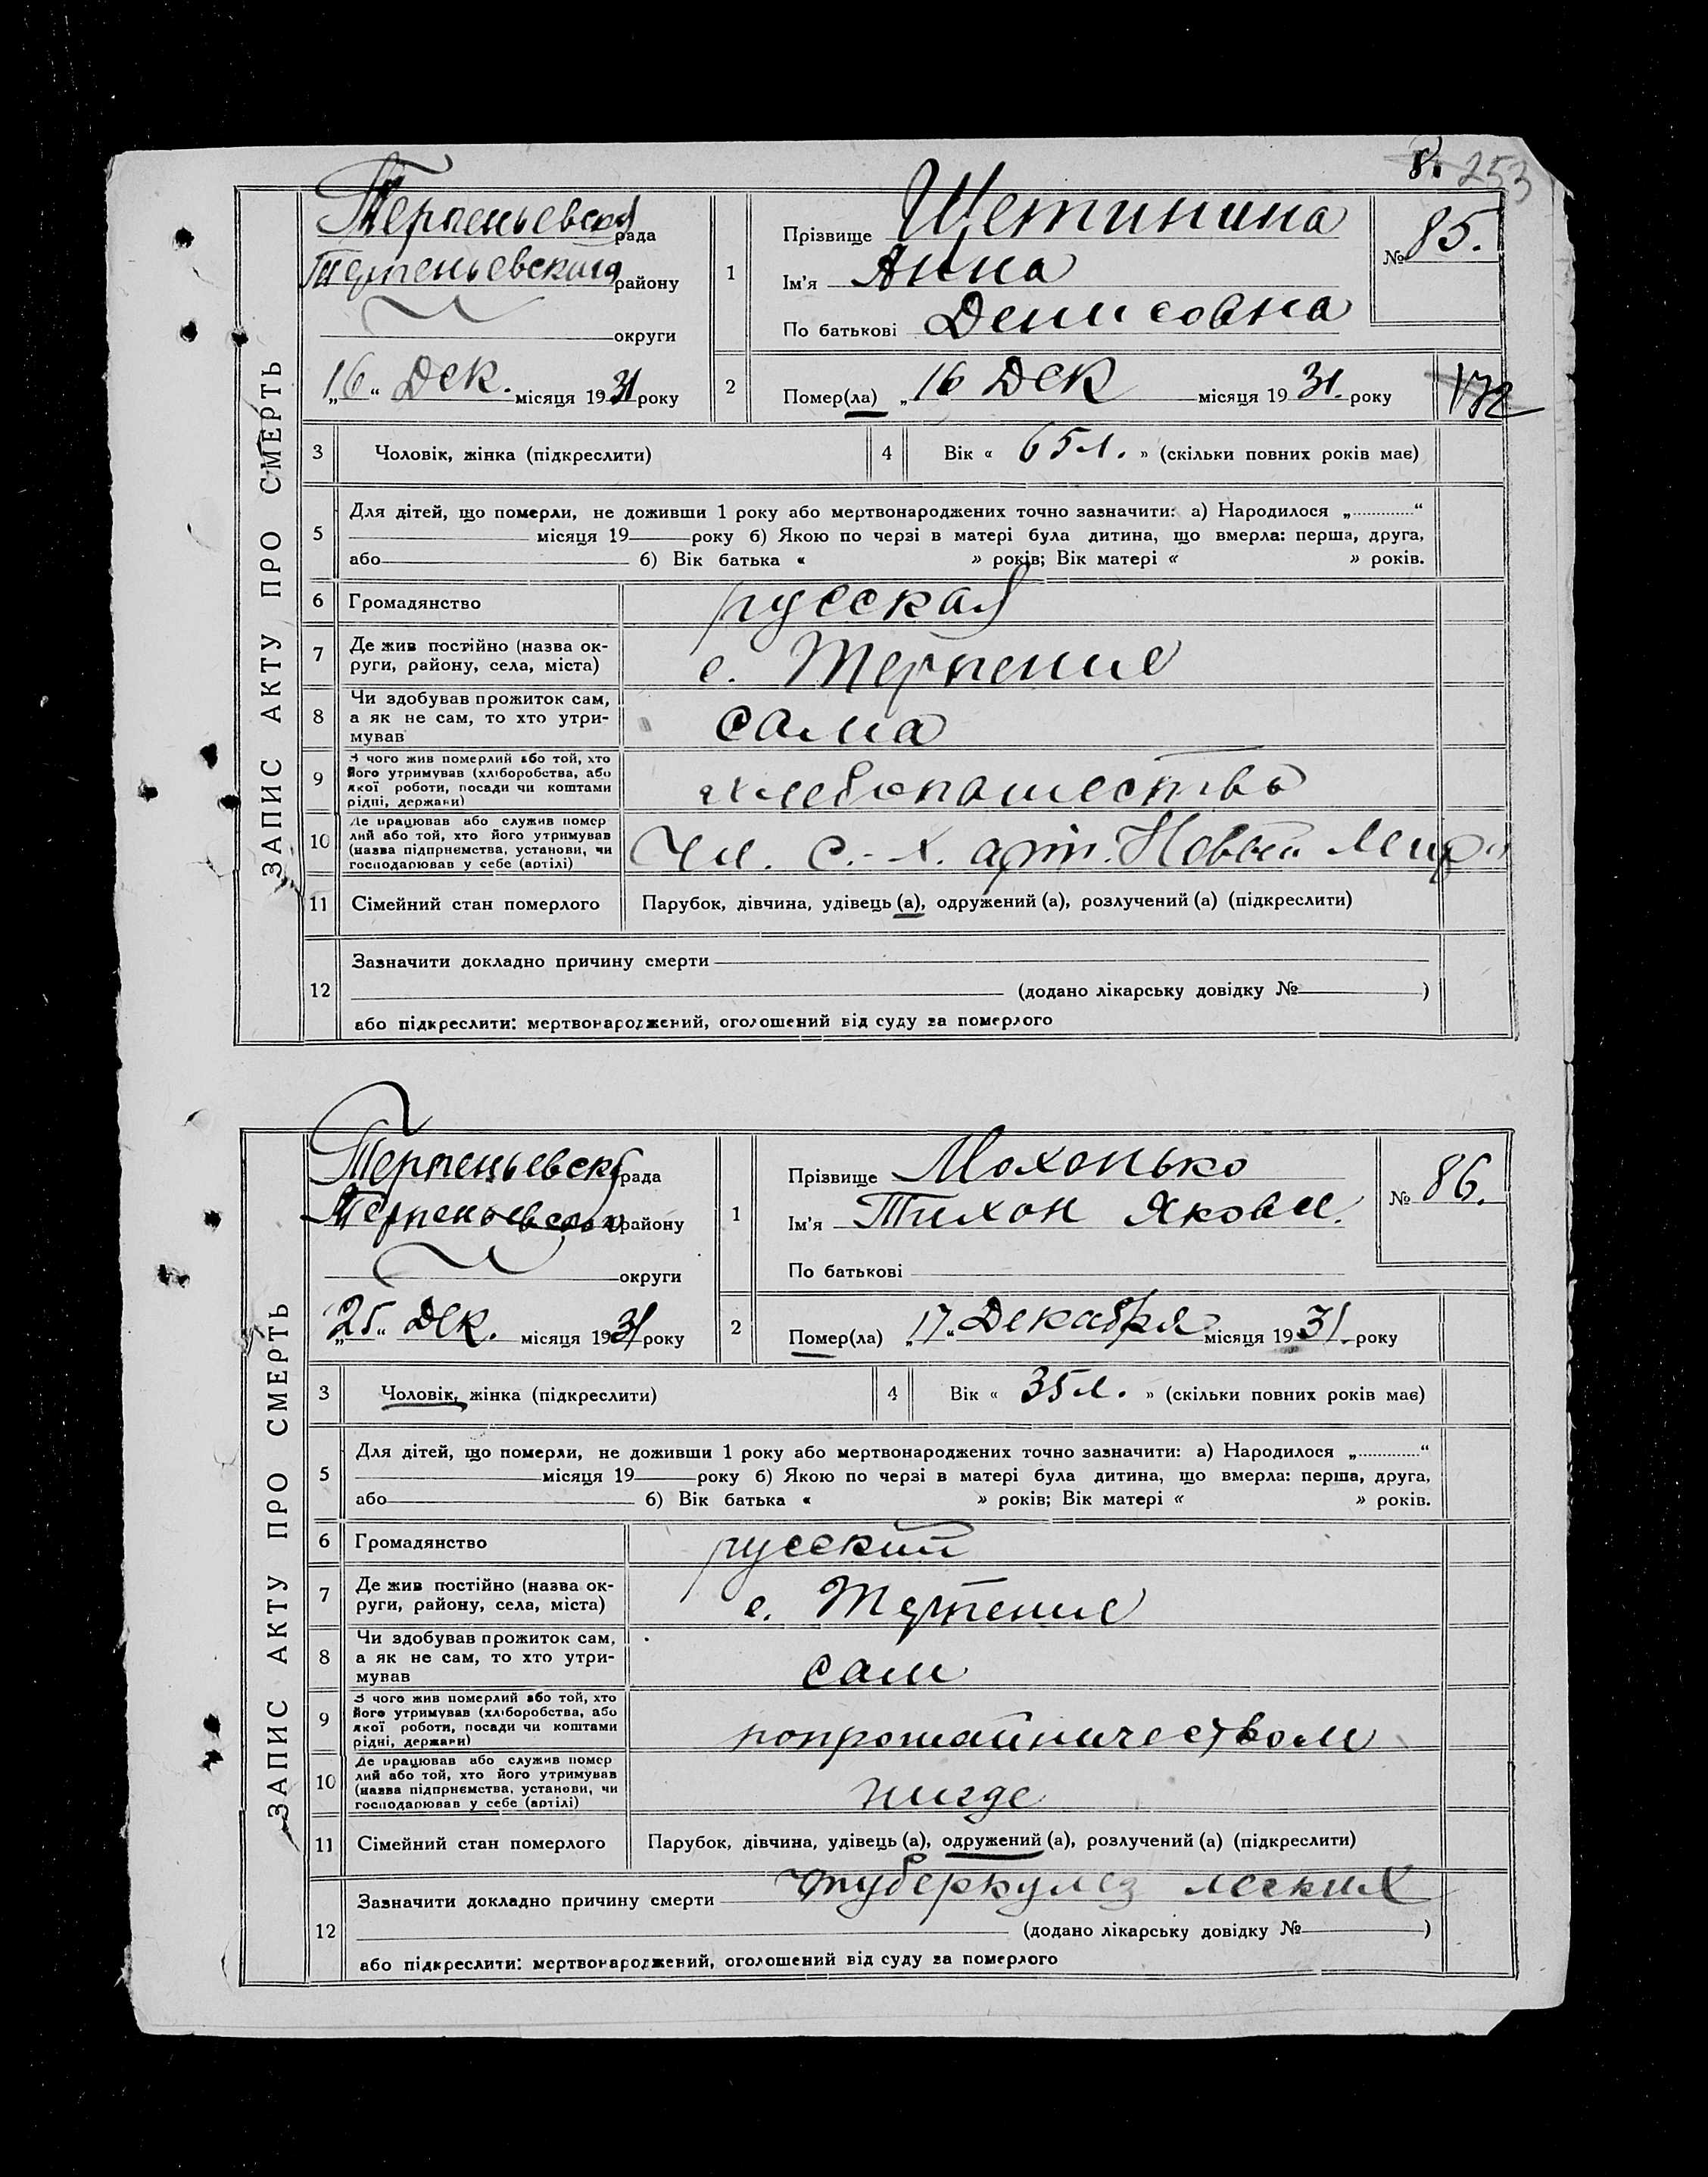 8. 253
ЗАПИС АКТУ ПРО СМЕРТЬ
Терпеньевская рада
Терпеньевского району
округи
„16“ Дек. місяця 1931 року
1
Прізвище Щетинина
Ім'я Анна
По батькові Денисовна
№ 85.
2
Помер(ла) „16 Дек місяця 1931. року
172
3 Чоловік, жінка (підкреслити)
4 Вік « 65 л. » (скільки повних років має)
5 Для дітей, що померли, не доживши 1 року або мертвонароджених точно зазначити: а) Народилося „............“
місяця 19 року б) Якою по черзі в матері була дитина, що вмерла: перша, друга,
або б) Вік батька « » років; Вік матері « » років.
6 Громадянство русская
7 Де жив постійно (назва ок-
руги, району, села, міста) с. Терпение
8 Чи здобував прожиток сам,
а як не сам, то хто утри-
мував сама
9 З чого жив померлий або той, хто
його утримував (хліборобства, або
якої роботи, посади чи коштами
рідні, держави) хлебопашество
10 Де працював або служив помер
лий або той, хто його утримував
(назва підпрнємства, установи, чи
господарював у себе (артілі) Чл. с.-х. арт. Новый Мир"
11 Сімейний стан померлого Парубок, дівчина, удівець (а), одружений (а), розлучений (а) (підкреслити)
12 Зазначити докладно причину смерти
(додано лікарську довідку № )
або підкреслити: мертвонароджений, оголошений від суду за померлого
ЗАПИС АКТУ ПРО СМЕРТЬ
Терпеньевская рада
Терпеньевского району
округи
„25“ Дек. місяця 1931 року
1
Прізвище Мохонько
Ім'я Тихон Яковл.
По батькові
№ 86.
2
Помер(ла) „17“ Декабря місяця 1931. року
3 Чоловік, жінка (підкреслити)
4 Вік « 35 л. » (скільки повних років має)
5 Для дітей, що померли, не доживши 1 року або мертвонароджених точно зазначити: а) Народилося „............“
місяця 19 року б) Якою по черзі в матері була дитина, що вмерла: перша, друга,
або б) Вік батька « » років; Вік матері « » років.
6 Громадянство русский
7 Де жив постійно (назва ок-
руги, району, села, міста) с. Терпение
8 Чи здобував прожиток сам,
а як не сам, то хто утри-
мував сам
9 З чого жив померлий або той, хто
його утримував (хліборобства, або
якої роботи, посади чи коштами
рідні, держави) попрошайничеством
10 Де працював або служив помер
лий або той, хто його утримував
(назва підпрнємства, установи, чи
господарював у себе (артілі) нигде
11 Сімейний стан померлого Парубок, дівчина, удівець (а), одружений (а), розлучений (а) (підкреслити)
12 Зазначити докладно причину смерти туберкулез легких
(додано лікарську довідку № )
або підкреслити: мертвонароджений, оголошений від суду за померлого